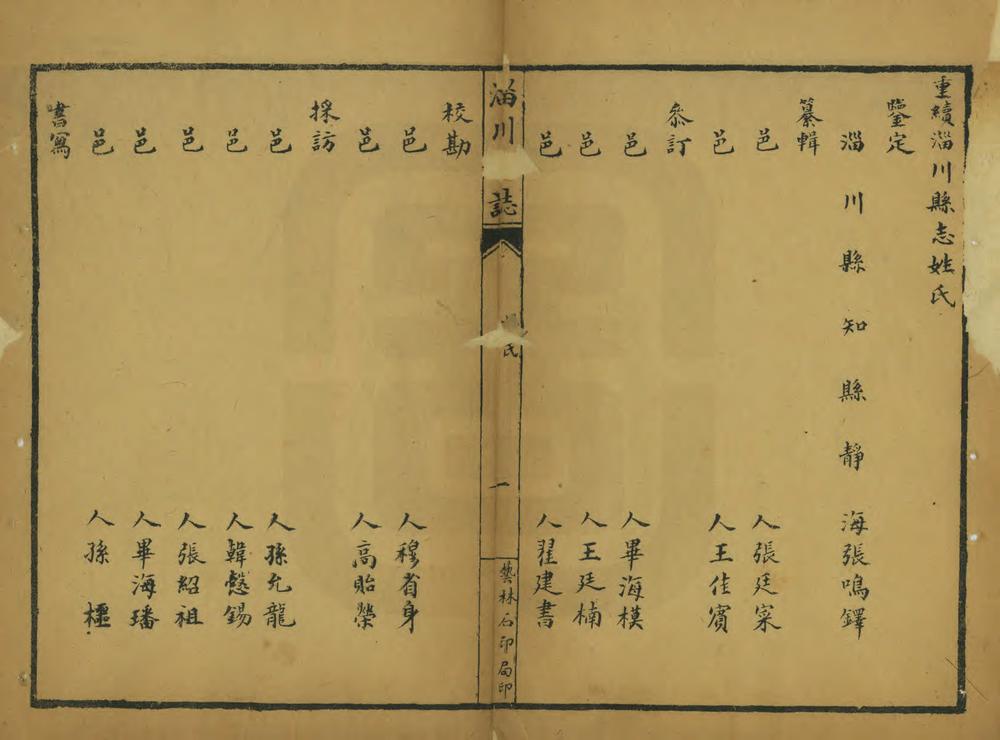 重續淄川縣志姓氏
鑒定
淄川縣知縣靜海張鳴鐸
纂輯
邑人張廷寀
邑人王佳賓
叅訂
邑人畢海模
邑人王廷楠
邑人翟建書
淄川 誌
氏
一
藝林石印局印
校勘
邑人穆省身
邑人高貽榮
採訪
邑人孫允龍
邑人韓懸錫
邑人張紹祖
邑人畢海璠
邑人孫橿
書寫